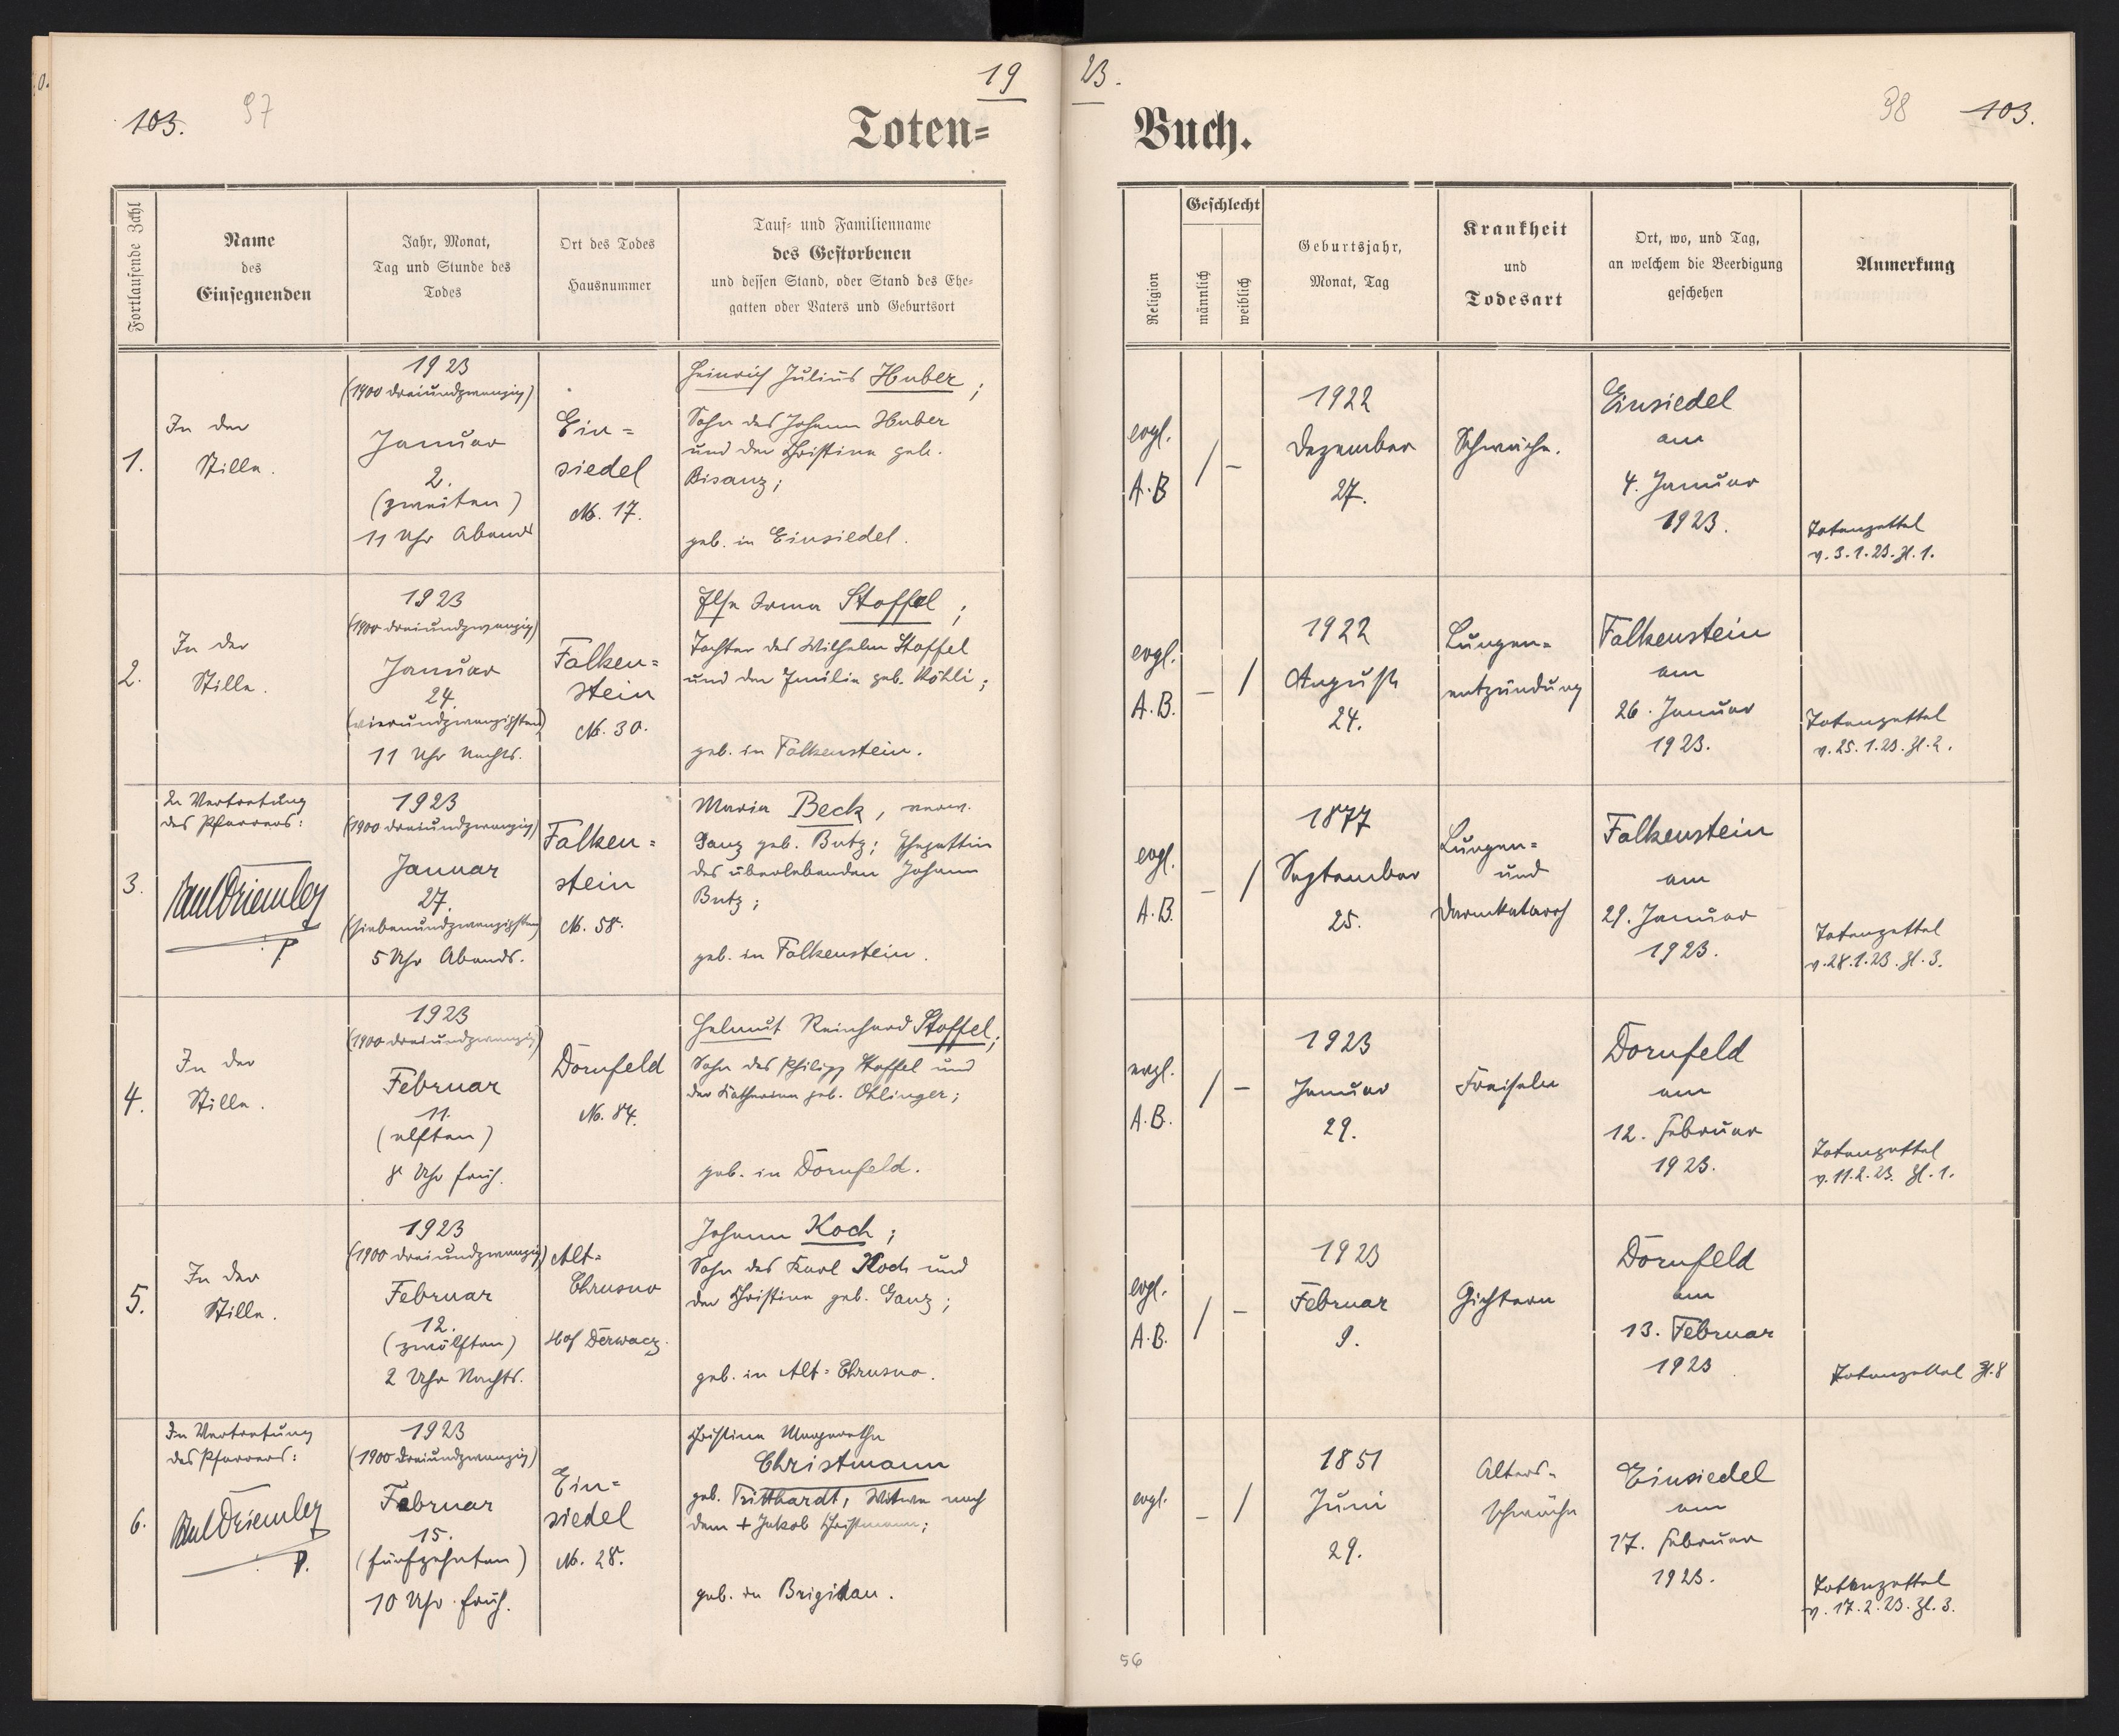 19
23.
103.
97
98
103.
Toten=
Buch.
Fortlaufende Zahl
Name
des
Einsegnenden
Jahr, Monat,
Tag und Stunde des
Todes
Ort des Todes
Hausnummer
Tauf= und Familienname
des Gestorbenen
und dessen Stand, oder Stand des Ehe=
gatten oder Vaters und Geburtsort
Religion
Geschlecht
männlich
weiblich
Geburtsjahr,
Monat, Tag
Krankheit
und
Todesart
Ort, wo, und Tag,
an welchem die Beerdigung
geschehen
Anmerkung
1.
In der
Stille.
1923
(1900 dreiundzwanzig)
Januar
2.
(zweiten)
11 Uhr Abends
Ein=
siedel
No. 17.
Heinrich Julius Huber;
Sohn des Johann Huber
und der Christina geb.
Bisanz;
geb. in Einsiedel.
evgl.
A.B
/ –
1922
Dezember
27.
Schwäche.
Einsiedel
am
4. Januar
1923.
Totenzettel
v. 3.1.23. Zl. 1.
2.
In der
Stille.
1923
(1900 dreiundzwanzig)
Januar
24.
(vierundzwanzigsten)
11 Uhr Nachts.
Falken=
stein
No. 30.
Ilse Irma Stoffel;
Tochter des Wilhelm Stoffel
und der Emilie geb. Köhli;
geb. in Falkenstein.
evgl.
A.B.
– /
1922
August
24.
Lungen=
entzündung
Falkenstein
am
26. Januar
1923.
Totenzettel
v. 25.1.23. Zl. 2.
3.
In Vertretung
des Pfarrers:
1923
(1900 dreiundzwanzig)
Januar
27.
(siebenundzwanzigsten)
5 Uhr Abends.
Falken=
stein
No. 58.
Maria Beck, verw.
Ganz geb. Butz; Ehegattin
des überlebenden Johann
Butz;
geb. in Falkenstein.
evgl.
A.B.
– /
1877
September
25.
Lungen=
und
Darmkatarrh
Falkenstein
am
29. Januar
1923.
Totenzettel
v. 28.1.23. Zl. 3.
4.
In der
Stille.
1923
(1900 dreiundzwanzig)
Februar
11.
(elften)
8 Uhr früh.
Dornfeld
No. 84.
Helmut Reinhard Stoffel;
Sohn des Philipp Stoffel und
der Katharina geb. Ohlinger;
geb. in Dornfeld.
evgl.
A.B.
/ –
1923
Januar
29.
Fraiseln
Dornfeld
am
12. Februar
1923.
Totenzettel
v. 11.2.23. Zl. 1.
5.
In der
Stille.
1923
(1900 dreiundzwanzig)
Februar
12.
(zwölften)
2 Uhr Nachts.
Alt=
Chrusno
Hof Derwacz.
Johann Koch;
Sohn des Karl Koch und
der Christina geb. Ganz;
geb. in Alt=Chrusno.
evgl.
A.B.
/ –
1923
Februar
9.
Gichtern
Dornfeld
am
13. Februar
1923
Totenzettel Zl. 8
6.
In Vertretung
des Pfarrers:
1923
(1900 dreiundzwanzig)
Februar
15.
(fünfzehnten)
10 Uhr früh.
Ein=
siedel
No. 28.
Christina Margaretha
Christmann
geb. Tritthardt, Witwe nach
dem + Jakob Christmann;
geb. in Brigidau.
evgl.
– /
1851
Juni
29.
Alters=
schwäche
Einsiedel
am
17. Februar
1923.
Totenzettel
v. 17.2.23. Zl. 3.
56